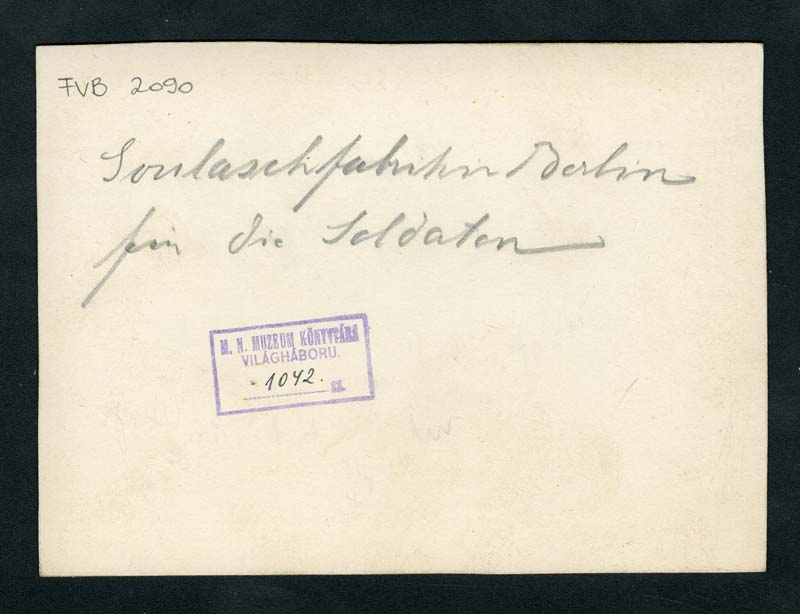 FVB 2090
Goulaschfabrik in Berlin
für die Soldaten
M. N. MUZEUM KÖNYVTÁRA
VILÁGHÁBORU.
1042. sz.